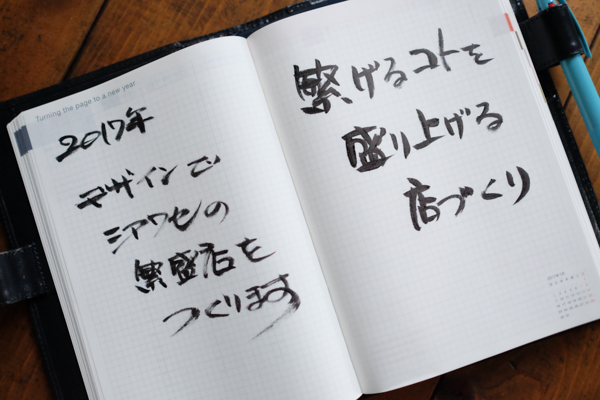 Turning the page to a new year
2017年
デザインで
シアワセの
繁盛店を
つくります
繁げるコトを
盛り上げる
店づくり